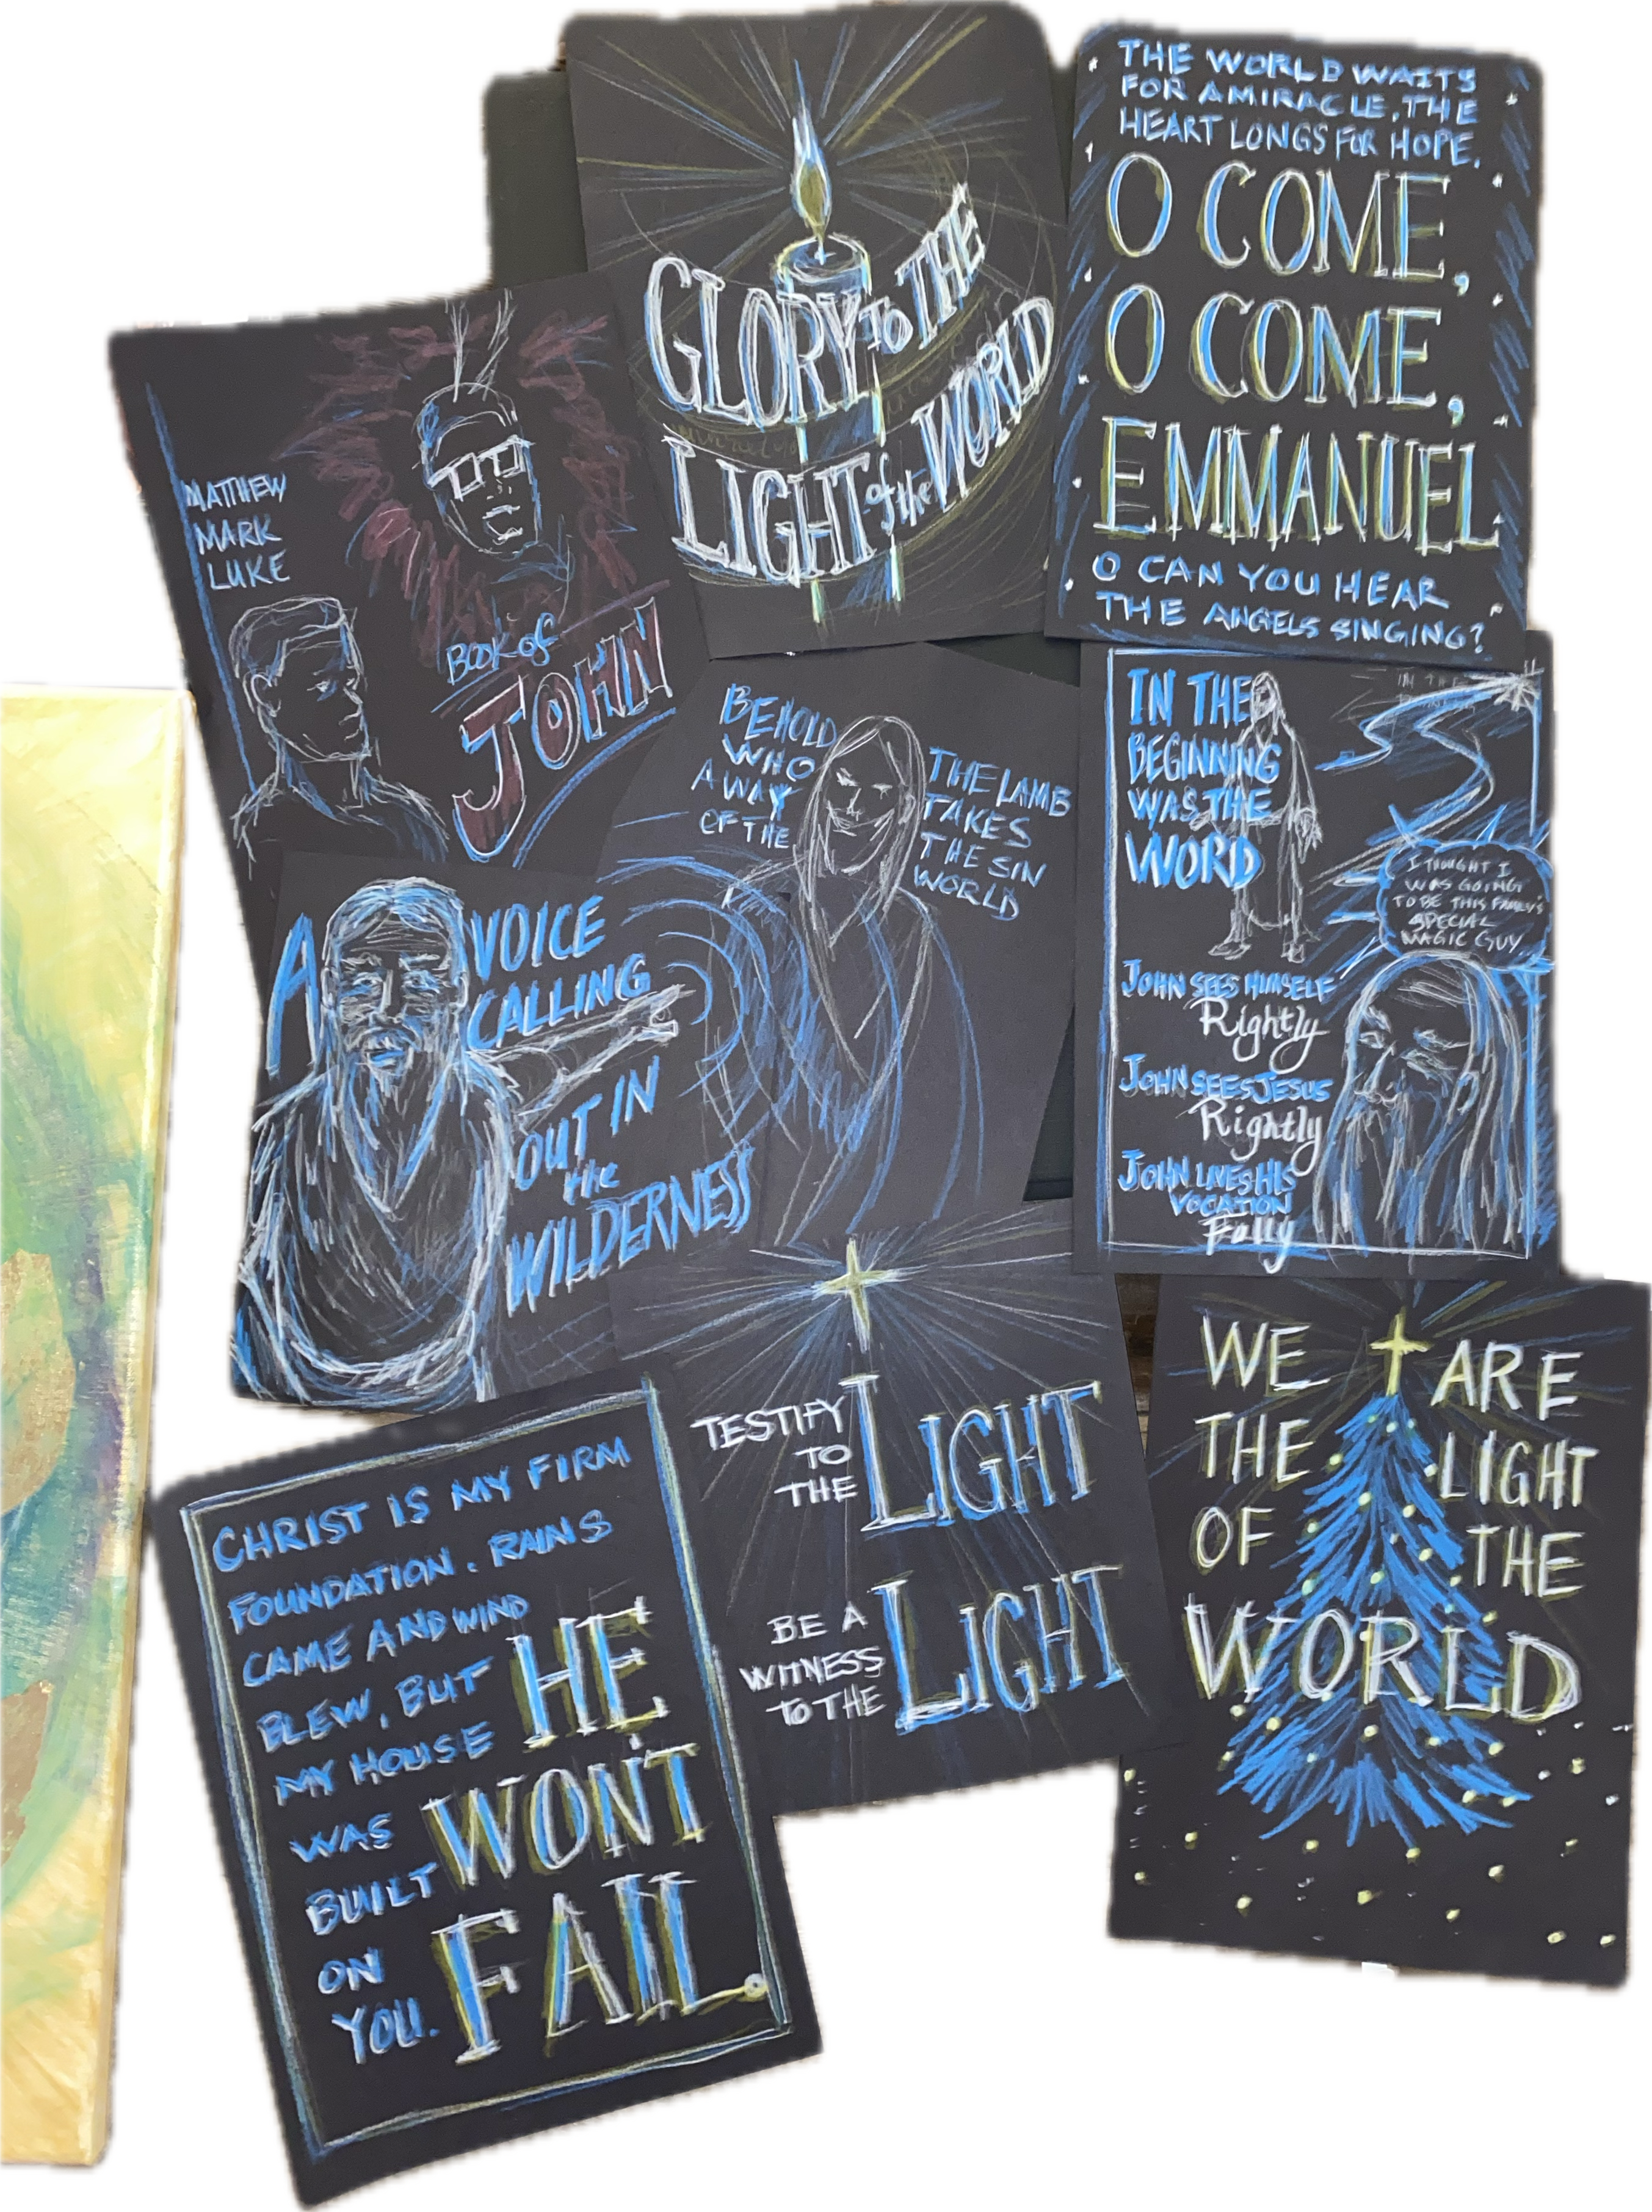 GLORY TO THE
LIGHT of the WORLD
THE WORLD WAITS
FOR A MIRACLE. THE
HEART LONGS FOR HOPE.
O COME,
O COME,
EMMANUEL
O CAN YOU HEAR
THE ANGELS SINGING?
MATTHEW
MARK
LUKE
BOOK of
JOHN
BEHOLD THE LAMB
WHO TAKES
AWAY THE SIN
OF THE WORLD
IN THE
BEGINNING
WAS THE
WORD
I THOUGHT I
WAS GOING
TO BE THIS FAMILY'S
SPECIAL
MAGIC GUY
JOHN SEES HIMSELF
Rightly
JOHN SEES JESUS
Rightly
JOHN LIVES HIS
VOCATION
Fully
A VOICE
CALLING
OUT IN
the
WILDERNESS
TESTIFY
TO
THE LIGHT
BE A
WITNESS
TO THE LIGHT
WE ARE
THE LIGHT
OF THE
WORLD
CHRIST IS MY FIRM
FOUNDATION. RAINS
CAME AND WIND
BLEW, BUT
MY HOUSE
WAS
BUILT
ON
YOU.
HE
WON'T
FAIL.